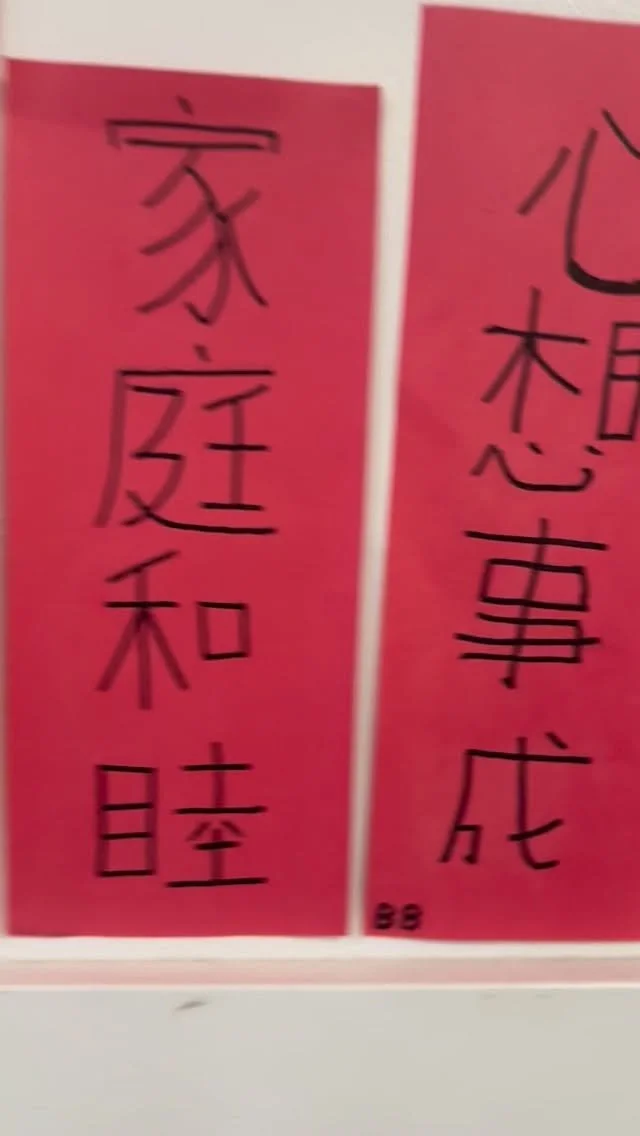 家庭和睦
心想事成
BB